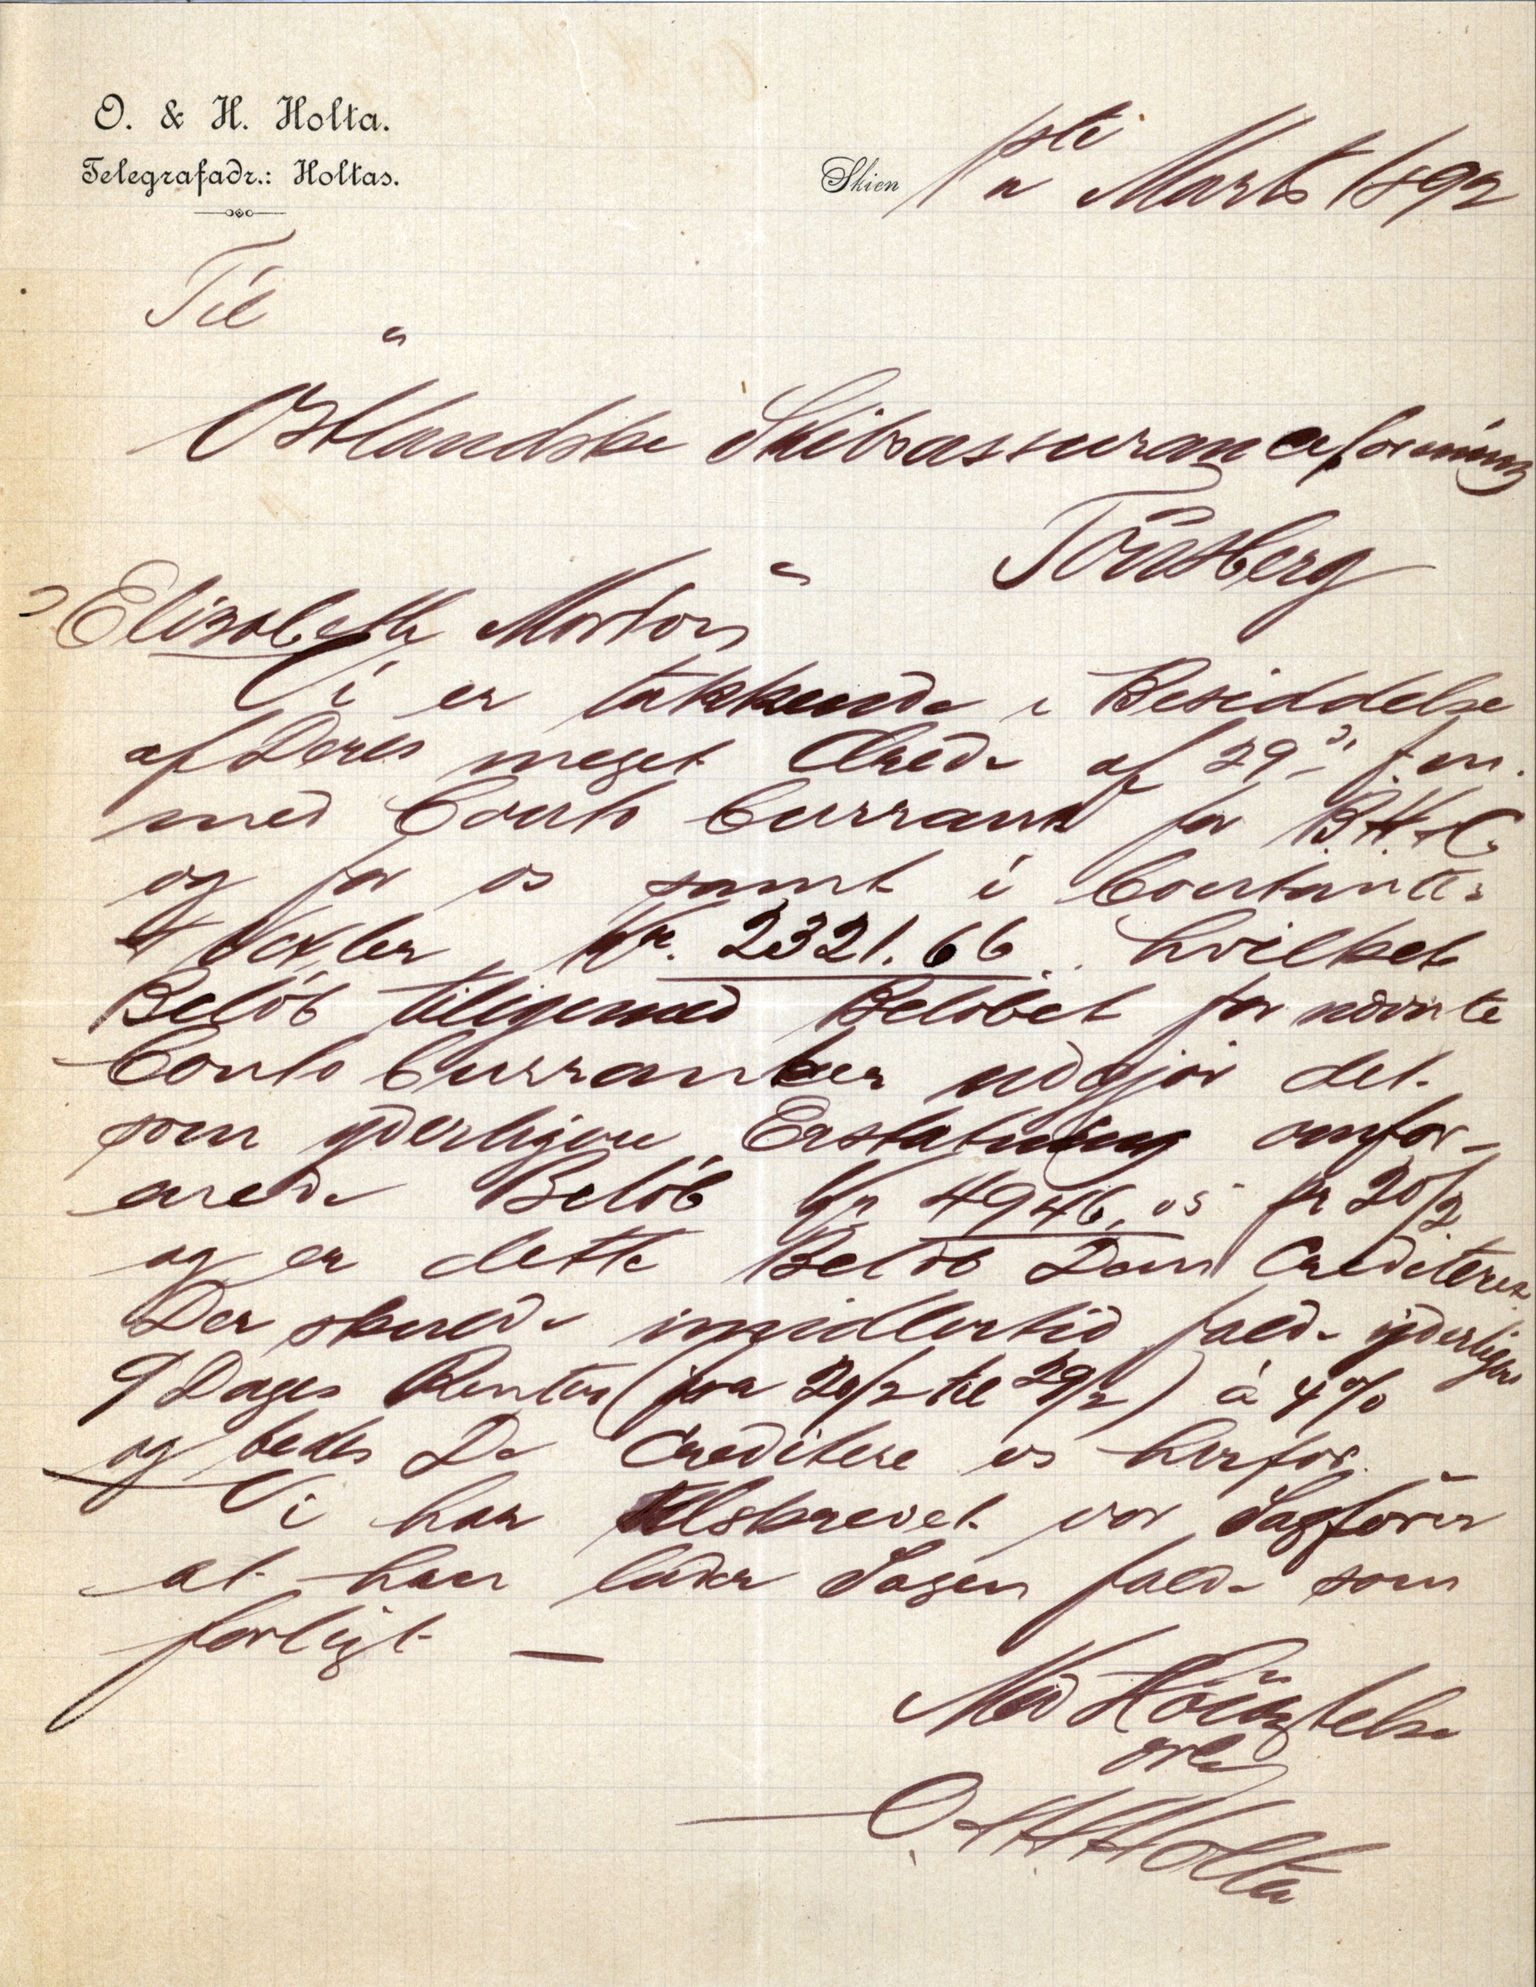 O. & H. Holta.
Telegrafadr.: Holtas.
Skien 1ste Marts 1892
Til
Østlandske Skibsassuranceforening
Tönsberg
"Elizabeth Morton"
Vi er takkende i Besiddelse
af Deres meget Ærede af 29 f.m.
med Conto Currant for B. H. & C.
og for os samt i Contanter
& Vexler Kr. 2321.66 hvilket
Belöb tilligemed Belöbet for nævnte
Conto Curranter udgjør det
som yderligere Erstatning omfor-
enede Belöb Kr 4946,05 pr 20/2
og er dette Belöb Dem Crediteret
Der skulde imidlertid falde yderligere
9 Dages Renter (fra 20/2 til 29/2) á 4%
og bedes De Creditere os herfor.
Vi har tilskrevet vor Sagförer
at han lader Sagen falde som
forligt —
Med Höiagtelse
O. & H. Holta